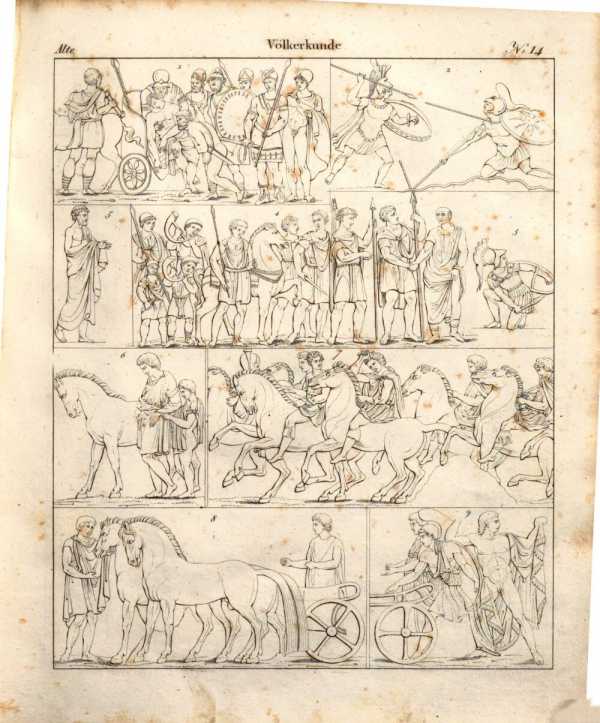 Alte
Völkerkunde
No. 14
1
2
3
4
5
6
8
9